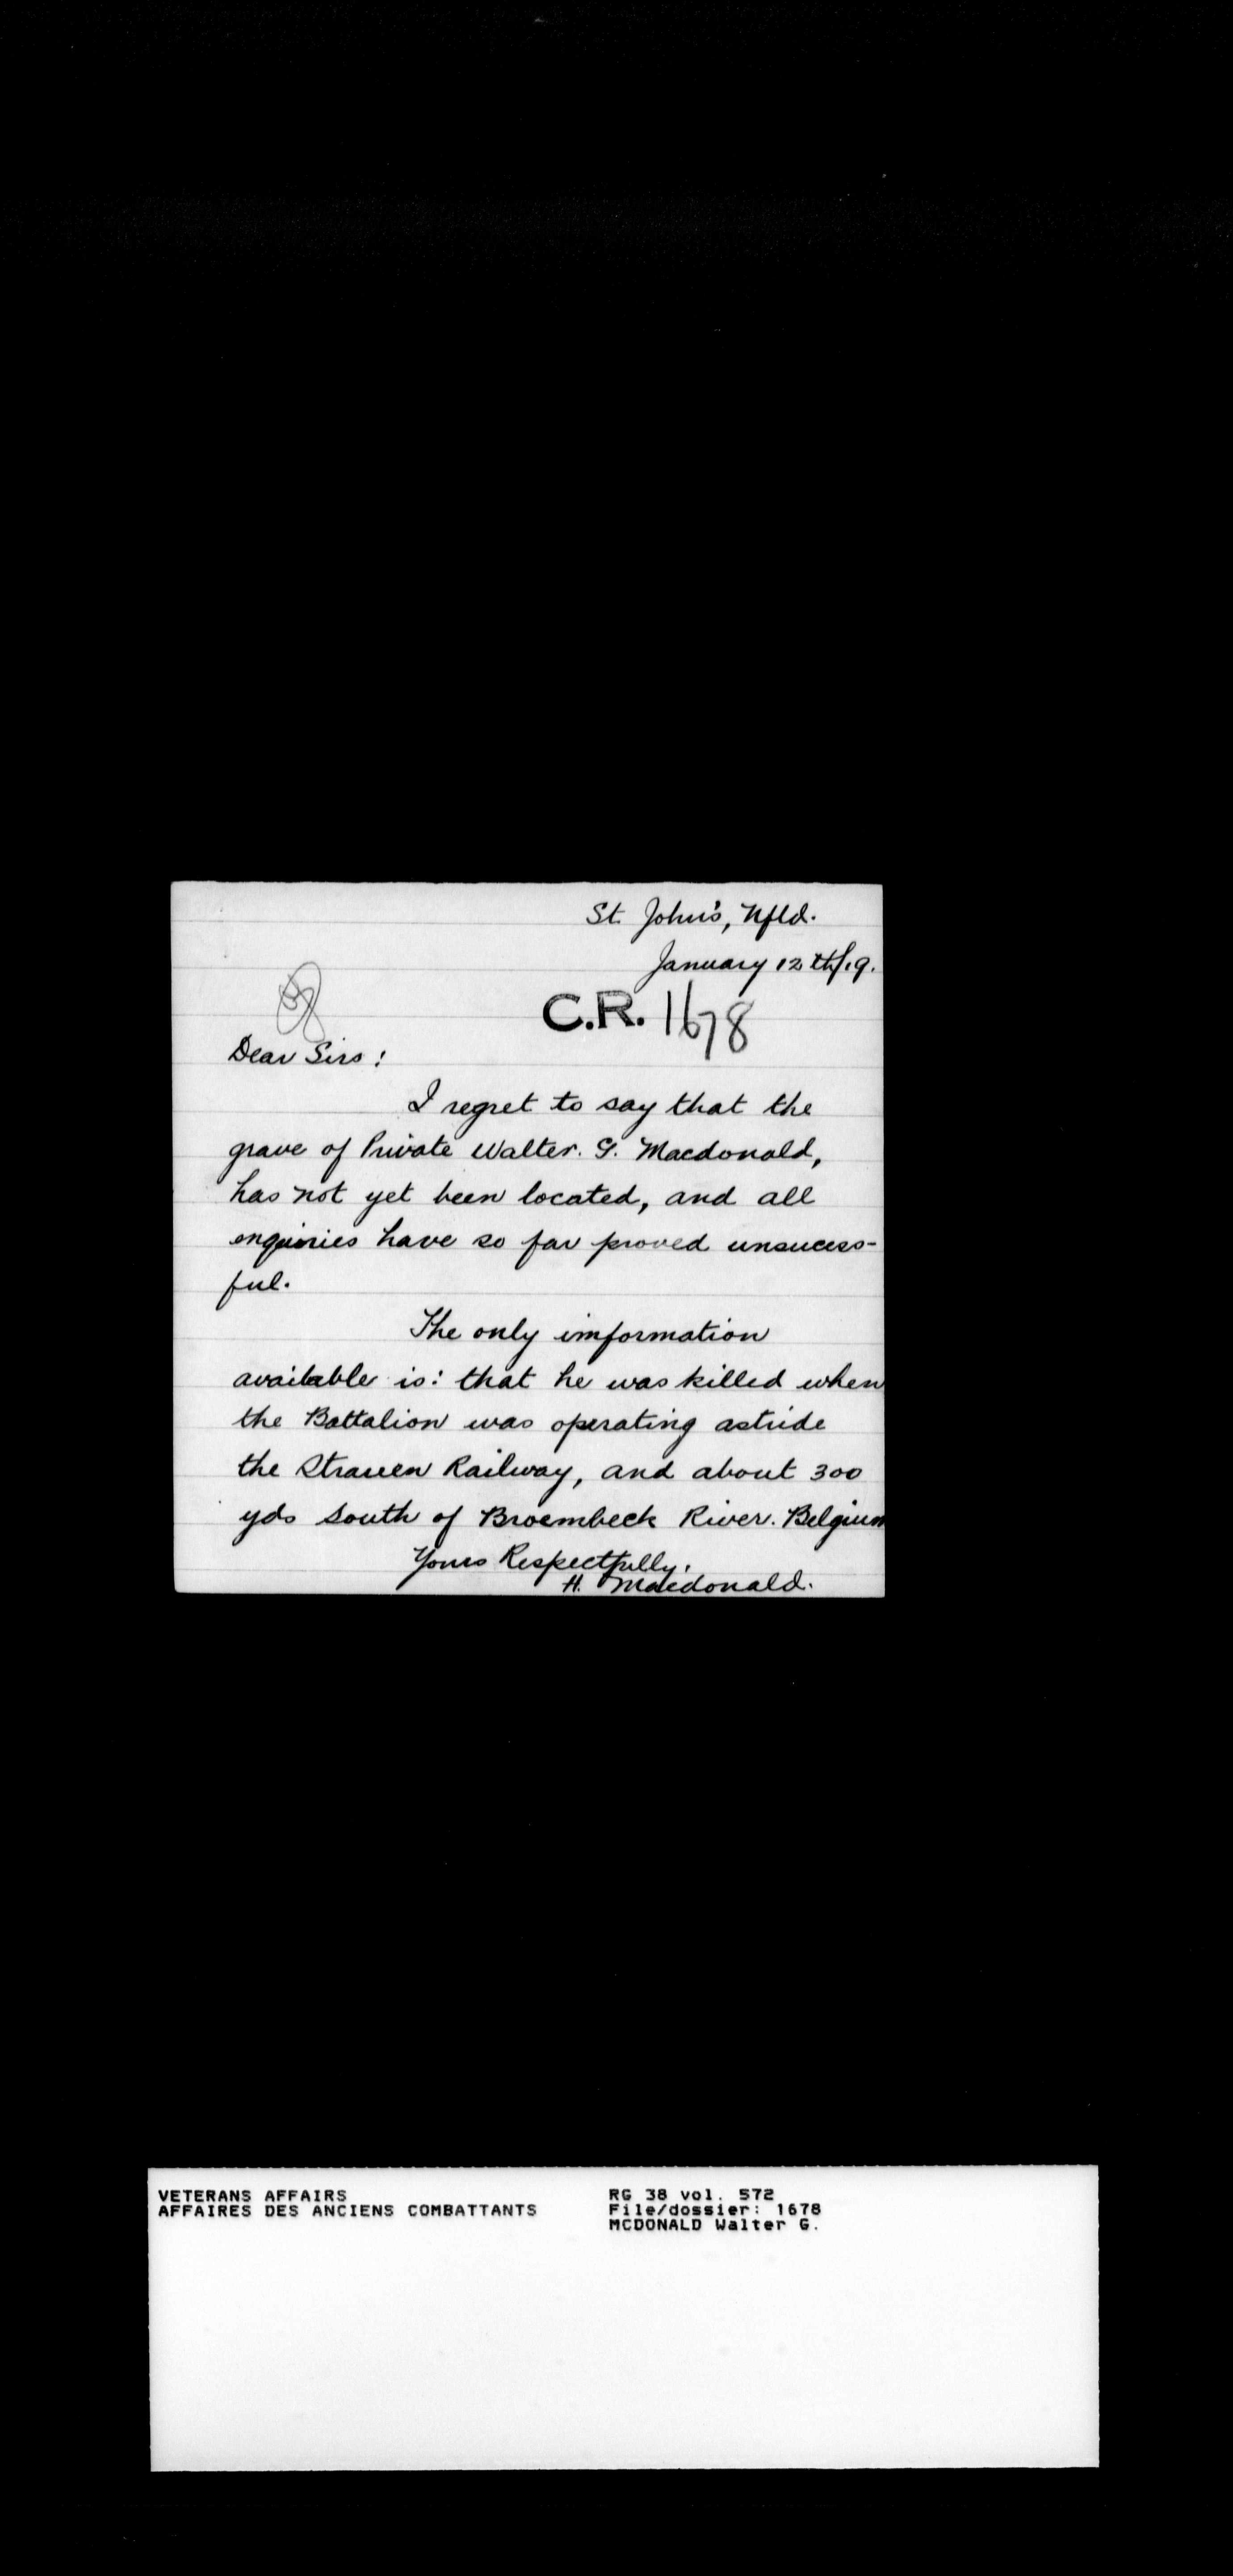 St. John's, Nfld.
January 12th/19.
C.R. 1678
Dear Sirs:
I regret to say that the
grave of Private Walter. G. Macdonald,
has not yet been located, and all
enquiries have so far proved unsucess-
ful.
The only imformation
available is: that he was killed when
the Battalion was operating astride
the Strauen Railway, and about 300
yds South of Broembeck River. Belgium
Yours Respectfully.
H. Macdonald.
VETERANS AFFAIRS
AFFAIRES DES ANCIENS COMBATTANTS
RG 38 vol. 572
File/dossier: 1678
MCDONALD Walter G.